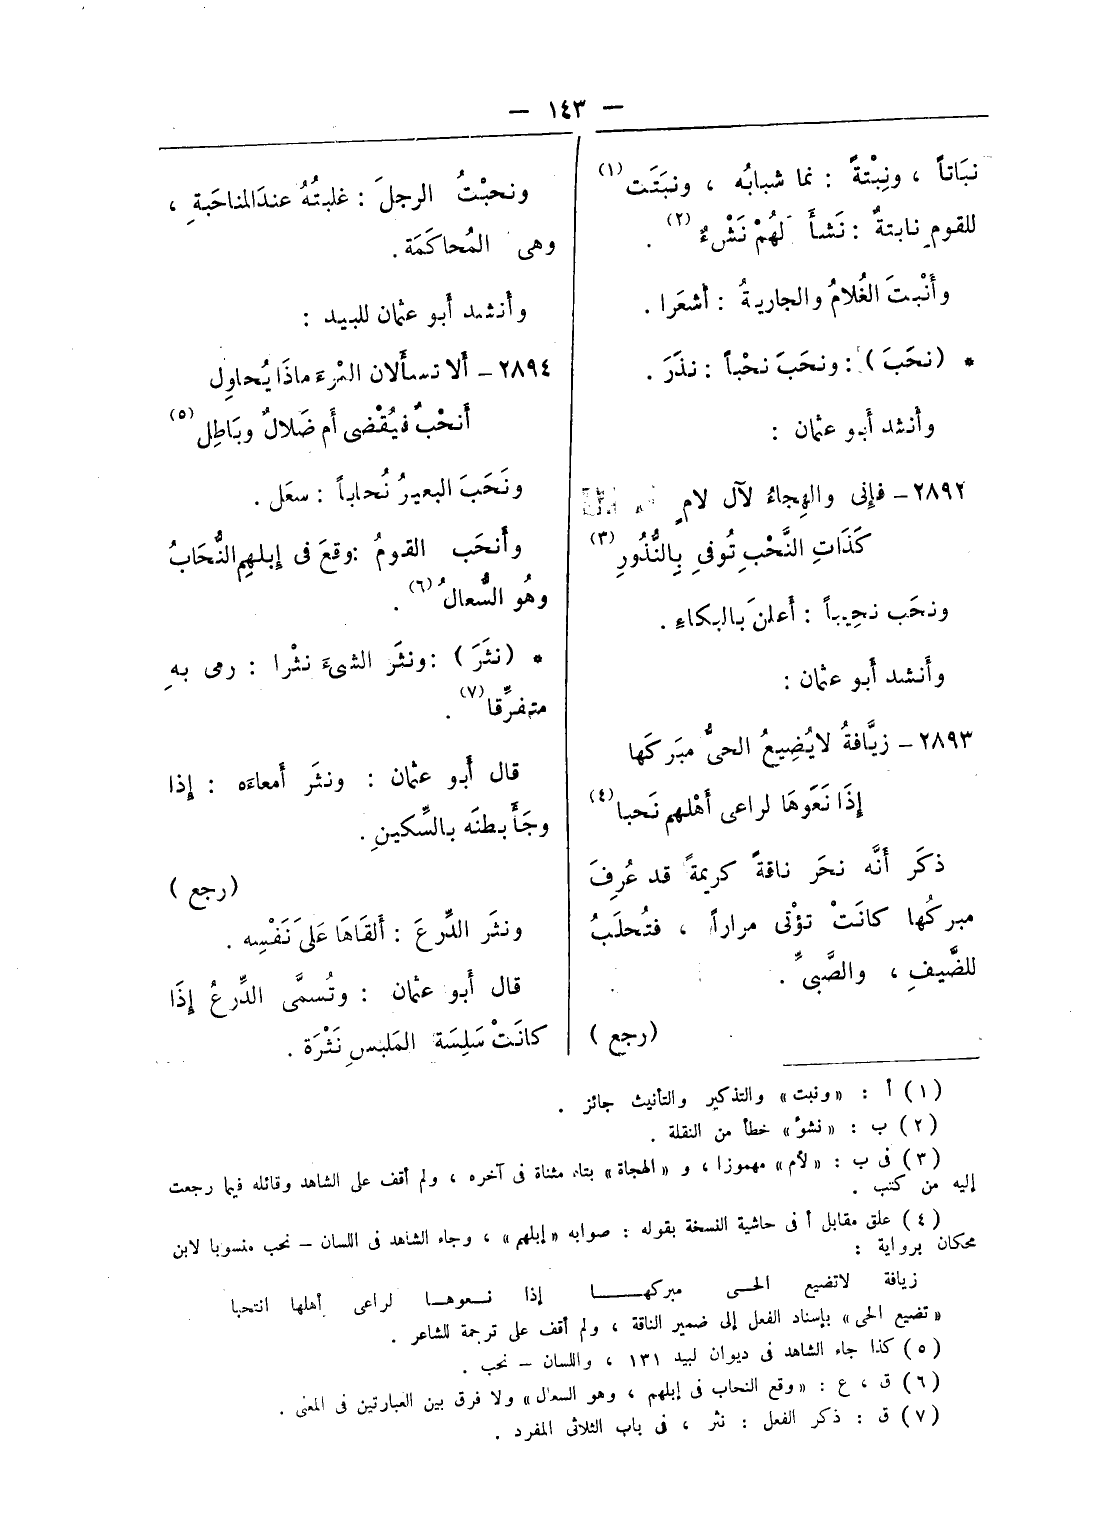 — ١٤٣ —
نبَاتاً ، ونِبْتةً : نما شبابُه ، ونبَتَت (١)
للقومِ نابتةٌ : نَشأَ لهُمْ نَشْءٌ (٢) .
وأَنْبتَ الغُلامُ والجاريةُ : أشعَرا .
* (نحَبَ) : ونحَبَ نحْباً : نذَرَ .
وأنشد أبو عثمان :
٢٨٩٢ – فإِنى والهِجاءُ لآل لامٍ
كَذَاتِ النَّحْبِ تُوفىِ بِالنُّذُورِ (٣)
ونحَب نحِيباً : أَعلنَ بالبكاءِ .
وأَنشد أَبو عثمان :
٢٨٩٣ – زيَّافةُ لايُضِيعُ الحىُّ مبَركَها
إِذَا نَعَوهَا لراعى أَهْلهم نَحبا (٤)
ذكَر أَنَّه نحَر ناقةً كريمةً قد عُرِفَ
مبركُها كانَتْ تؤْتى مراراً ، فتُحلَبُ
للضَّيفِ ، والصَّبىِّ .
(رجع)
ونحبْتُ الرجلَ : غلبتُهُ عندَالمناحَبةِ ،
وهى المُحاكَمَة .
وأَنشد أَبو عثمان للبيد :
٢٨٩٤ – ألا تسأَلان المْرءَ ماذَا يُحاوِل
أَنحْبٌ فيُقْضى أَم ضَلالٌ وبَاطِل (٥)
ونَحَبَ البعيرُ نُحاباً : سعَل .
وأَنحَب القومُ : وقعَ فى إِبلهِم النُّحَابُ
وهُو السُّعالُ (٦) .
* (نثَرَ) : ونثَر الشىءَ نثْرا : رمى بهِ
متفرِّقا (٧) .
قال أَبو عثمان : ونثَر أمعاءَه : إِذا
وجَأَ بطنَه بالسِّكينِ .
(رجع)
ونثَر الدِّرعَ : أَلقَاهَا عَلىَ نَفْسِه .
قال أَبو عثمان : وتُسمَّى الدِّرعُ إِذَا
كانَتْ سَلِسَة المَلبسِ نَثْرَة .
(١) أ : «ونبت» والتذكير والتأنيث جائز .
(٢) ب : «نشؤ» خطأ من النقلة .
(٣) فى ب : «لأم» مهموزا ، و «الهجاة» بتاء مثناة فى آخره ، ولم أقف على الشاهد وقائله فيما رجعت
إليه من كتب .
(٤) علق مقابل أ فى حاشية النسخة بقوله : صوابه «إبلهم» ، وجاء الشاهد فى اللسان – نحب منسوبا لابن
محكان برواية :
زيافة لاتضيع الحى مبركها إذا نعوها لراعى أهلها انتحبا
«تضيع الحى» بإسناد الفعل إلى ضمير الناقة ، ولم أقف على ترجمة للشاعر .
(٥) كذا جاء الشاهد فى ديوان لبيد ١٣١ ، واللسان – نحب .
(٦) ق ، ع : «وقع النحاب فى إبلهم ، وهو السعال» ولا فرق بين العبارتين فى المعنى .
(٧) ق : ذكر الفعل : نثر ، فى باب الثلاثى المفرد .